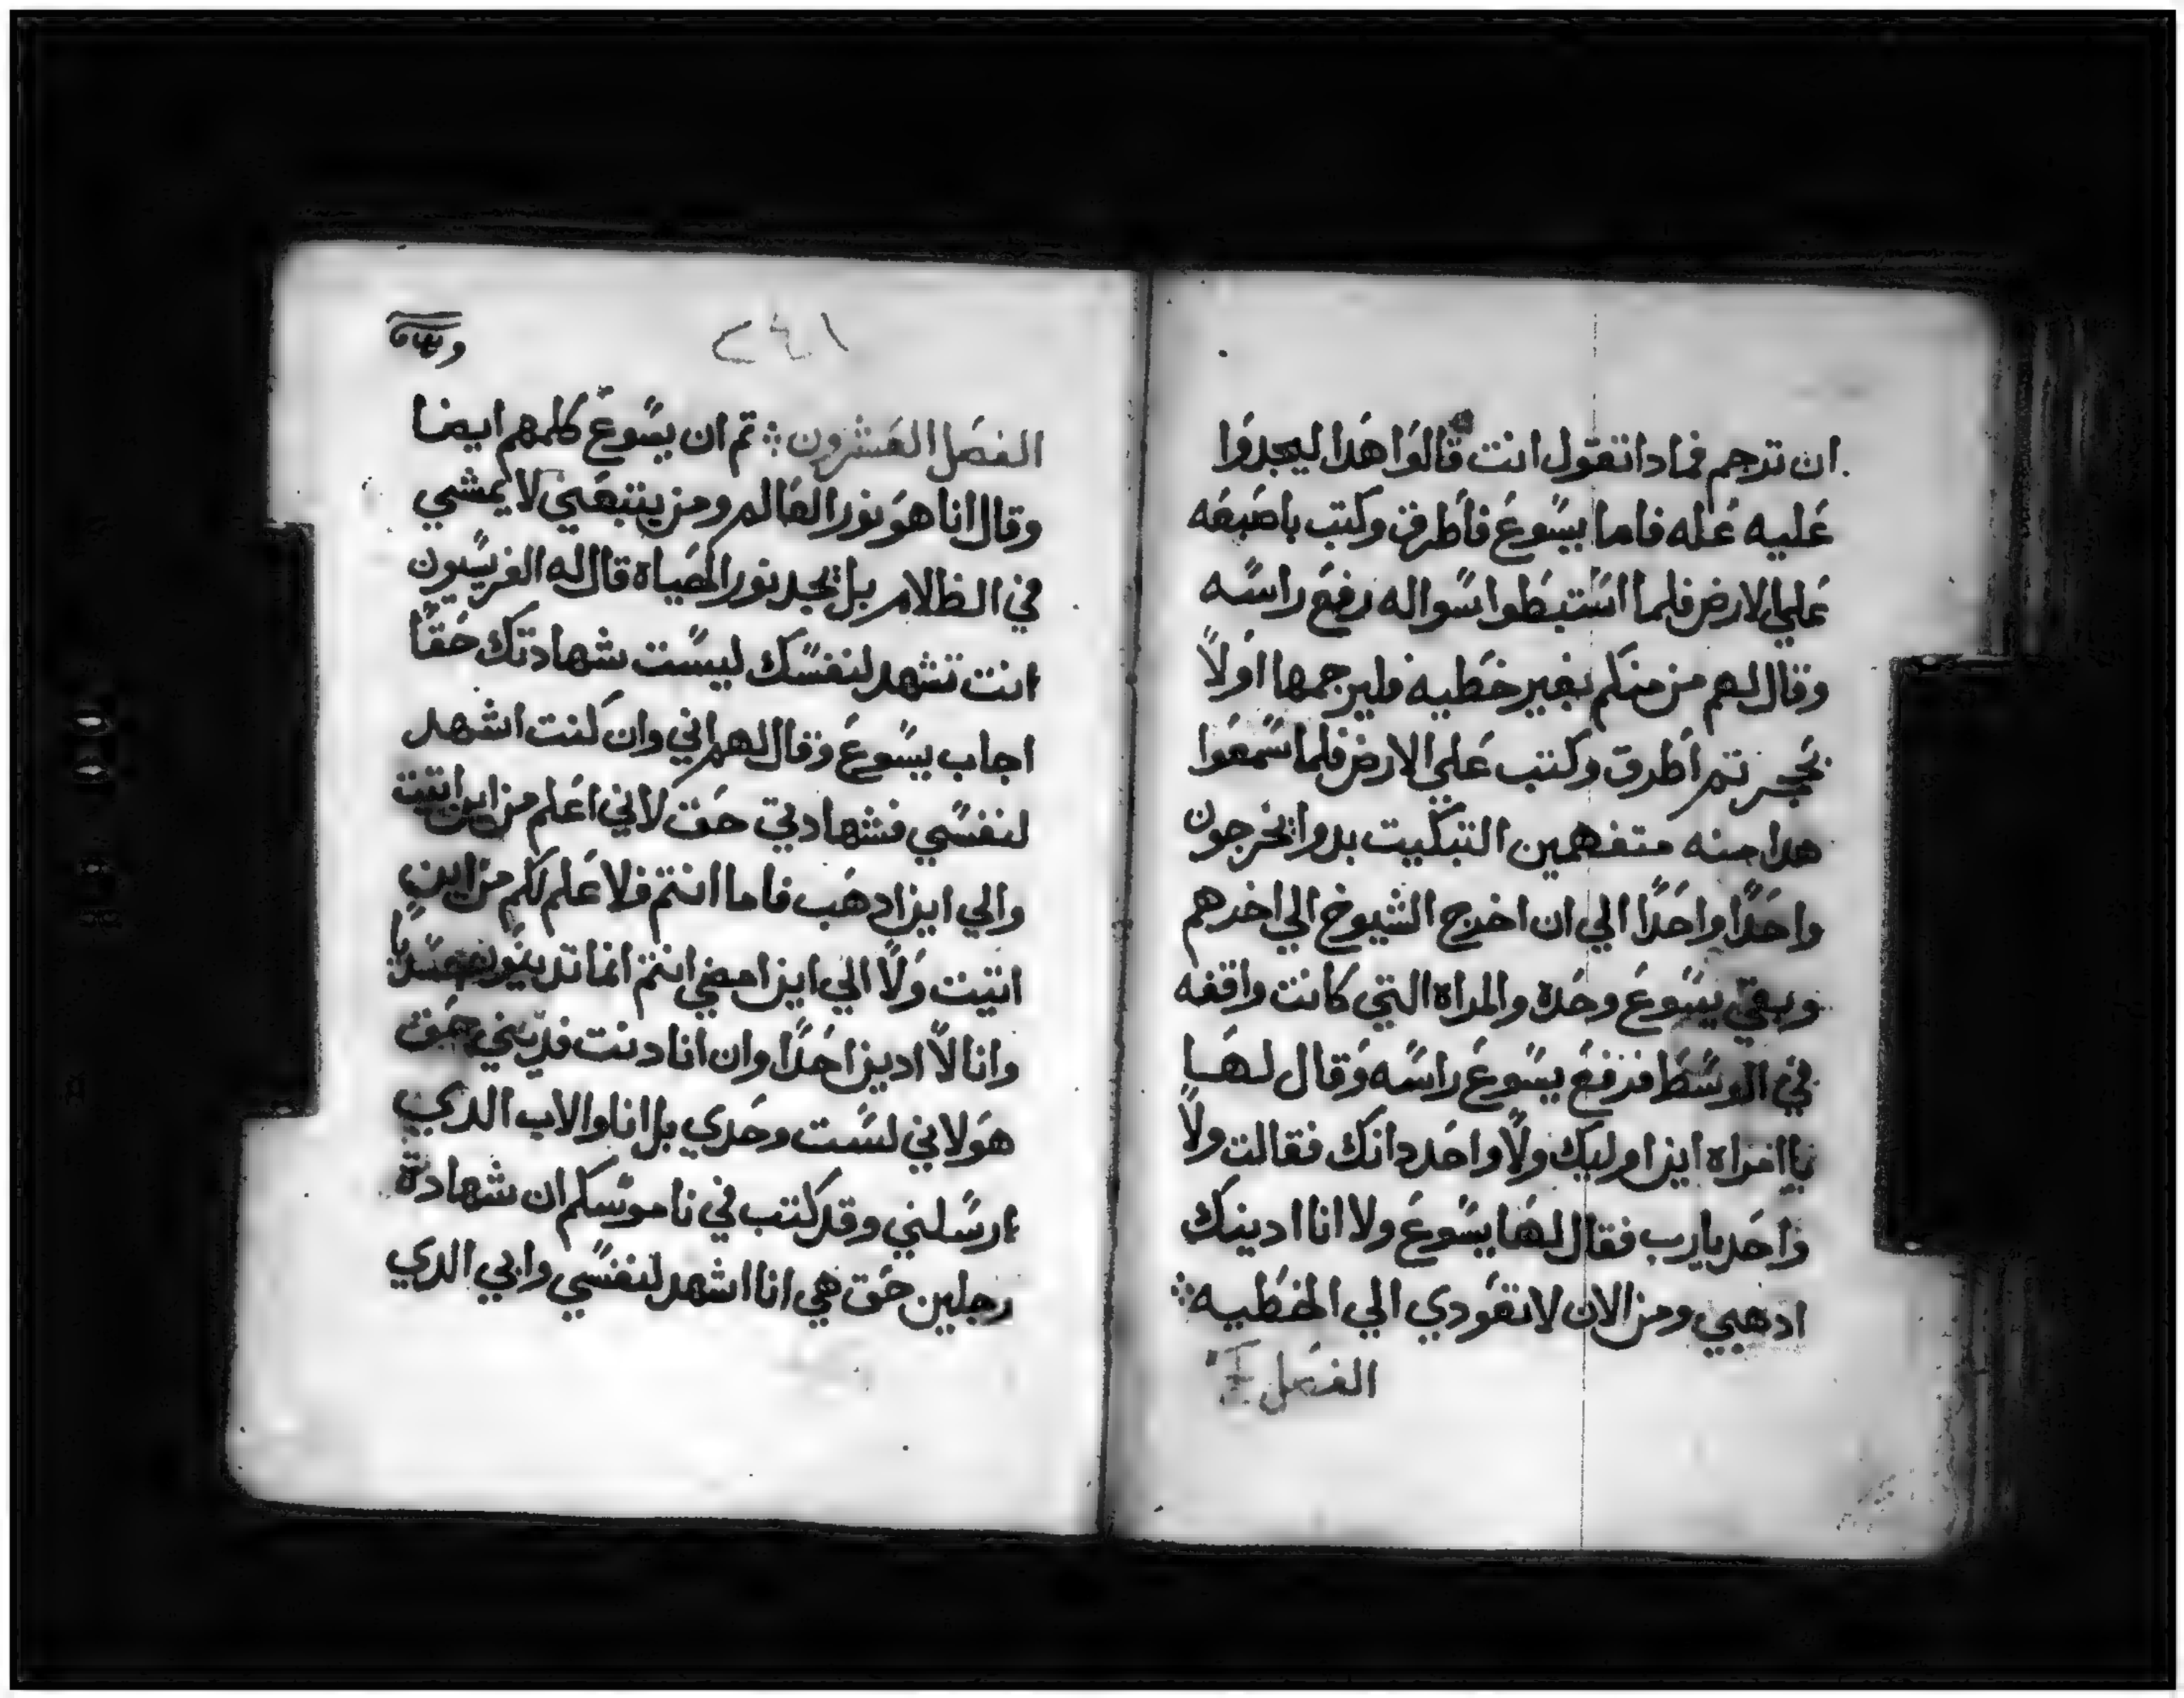 ان ترجم فماداتقول انت قالوا هدا ليجدوا
عليه عله فاما يسوع فاطرق وكتب باصبعه
علي الارض فلما استبطوا سواله رفع راسه
وقال لهم من منكم بغير خطيه فليرجمها اولاً
بحجر تم اطرق وكتب علي الارض فلما سمعوا
هدا منه متفهمين التبكيت بدوا يخرجون
واحدًا واحدًا الي ان اخرج الشيوخ الي اخرهم
وبقي يسوع وحده والمراه التي كانت واقفه
في الوسط فرفع يسوع راسه وقال لها
يا امراه اين اوليك ولا واحد دانك فقالت ولا
واحد يارب فقال لها يسوع ولا انا ادينك
ادهبي ومن الان لا تعودي الي الخطيه
الفصل
٢٤١
الفصل العشرون تم ان يسوع كلمهم ايضا
وقال انا هو نور العالم ومن يتبعني لا يمشي
في الظلام بل يجد نور الحياه قال له الفريسيون
انت تشهد لنفسك ليست شهادتك حقًا
اجاب يسوع وقال لهم اني وان كنت اشهد
لنفسي فشهادتي حق لاني اعلم من اين اتيت
والي اين ادهب فاما انتم فلا علم لكم من اين
اتيت ولا الي اين امضي انتم انما تدينون
وانا لا ادين احدًا وان انا دنت فديني حق
هو لاني لست وحدي بل انا والاب الدي
ارسلني وقد كتب في ناموسكم ان شهادة
رجلين حق هي انا اشهد لنفسي وابي الدي